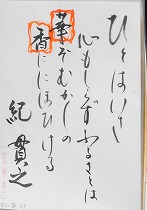 ひとはいさ
心もしらずふるさとは
華ぞむかしの
香ににほひける
紀貫之